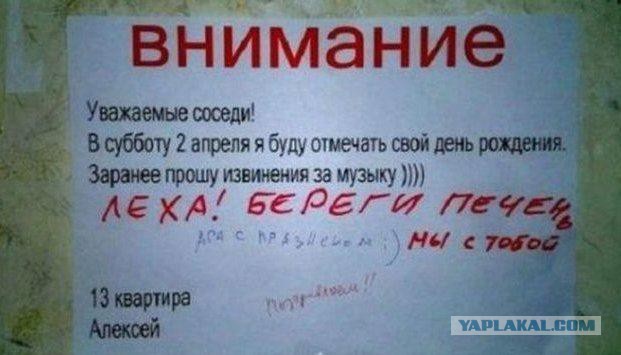 внимание
Уважаемые соседи!
В субботу 2 апреля я буду отмечать свой день рождения.
Заранее прошу извинения за музыку ))))
ЛЕХА! БЕРЕГИ ПЕЧЕНЬ
ДРА С ПРАЗНИКОМ :) МЫ С ТОБОЙ
Поздравляем!!
13 квартира
Алексей
YAPLAKAL.COM